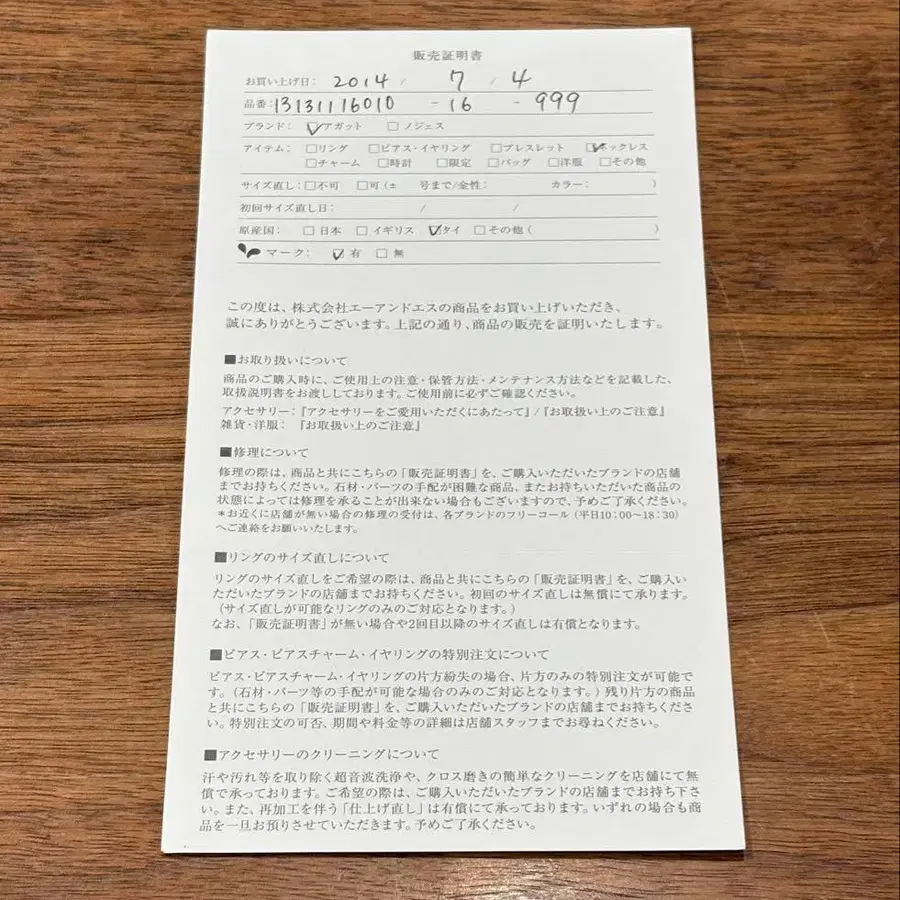 販売証明書
お買い上げ日: 2014 / 7 / 4
品番: 13131116010 - 16 - 999
ブランド: ☑アガット □ノジェス
アイテム: □リング □ピアス・イヤリング □ブレスレット ☑ネックレス
□チャーム □時計 □限定 □バッグ □洋服 □その他
サイズ直し: □不可 □可 (± 号まで/金性: カラー: )
初回サイズ直し日: / /
原産国: □日本 □イギリス ☑タイ □その他 ( )
マーク: ☑有 □無
この度は、株式会社エーアンドエスの商品をお買い上げいただき、
誠にありがとうございます。上記の通り、商品の販売を証明いたします。
■お取り扱いについて
商品のご購入時に、ご使用上の注意・保管方法・メンテナンス方法などを記載した、
取扱説明書をお渡ししております。ご使用前に必ずご確認ください。
アクセサリー:『アクセサリーをご愛用いただくにあたって』/『お取扱い上のご注意』
雑貨・洋服: 『お取扱い上のご注意』
■修理について
修理の際は、商品と共にこちらの「販売証明書」を、ご購入いただいたブランドの店舗
までお持ちください。石材・パーツの手配が困難な商品、またお持ちいただいた商品の
状態によっては修理を承ることが出来ない場合もございますので、予めご了承ください。
*お近くに店舗が無い場合の修理の受付は、各ブランドのフリーコール(平日10:00〜18:30)
へご連絡をお願いいたします。
■リングのサイズ直しについて
リングのサイズ直しをご希望の際は、商品と共にこちらの「販売証明書」を、ご購入い
ただいたブランドの店舗までお持ちください。初回のサイズ直しは無償にて承ります。
(サイズ直しが可能なリングのみのご対応となります。)
なお、「販売証明書」が無い場合や2回目以降のサイズ直しは有償となります。
■ピアス・ピアスチャーム・イヤリングの特別注文について
ピアス・ピアスチャーム・イヤリングの片方紛失の場合、片方のみの特別注文が可能で
す。(石材・パーツ等の手配が可能な場合のみのご対応となります。)残り片方の商品
と共にこちらの「販売証明書」を、ご購入いただいたブランドの店舗までお持ちくださ
い。特別注文の可否、期間や料金等の詳細は店舗スタッフまでお尋ねください。
■アクセサリーのクリーニングについて
汗や汚れ等を取り除く超音波洗浄や、クロス磨きの簡単なクリーニングを店舗にて無
償で承っております。ご希望の際は、ご購入いただいたブランドの店舗までお持ち下さ
い。また、再加工を伴う「仕上げ直し」は有償にて承っております。いずれの場合も商
品を一旦お預りさせていただきます。予めご了承ください。